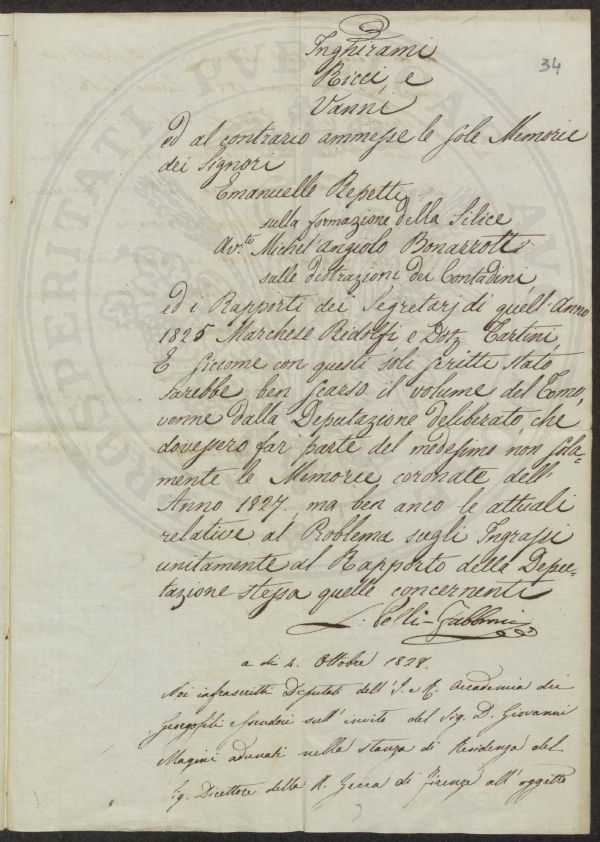 34
Inghirami
Ricci, e
Vanni
ed al contrario ammesse le sole Memorie
dei Signori
Emanuelle Repetti
sulla formazione della Silice
Av.to Michel'angiolo Bonarroti
sulle distrazioni dei Contadini,
ed i Rapporti dei Segretarj di quell'Anno
1825 Marchese Ridolfi e Dott. Tartini,
E siccome con questi soli scritti stato
sarebbe ben scarso il volume del Tomo,
venne dalla Deputazione deliberato, che
dovessero far parte del medesimo non sola=
mente le Memorie coronate dell'
Anno 1827. ma ben anco le attuali
relative al Problema sugli Ingrassi
unitamente al Rapporto della Depu=
tazione stessa quelle concernenti
L: Pelli-Fabbroni
a di 4. Ottobre 1828.
Noi infrascritti Deputati dell'I. e R. Accademia dei
Georgofili essendoci sull'invito del Sig. D. Giovanni
Magini adunati nella stanza di Residenza del
Sig. Direttore della R. Zecca di Firenze all'oggetto
PROSPERITATI PUBLICAE AU